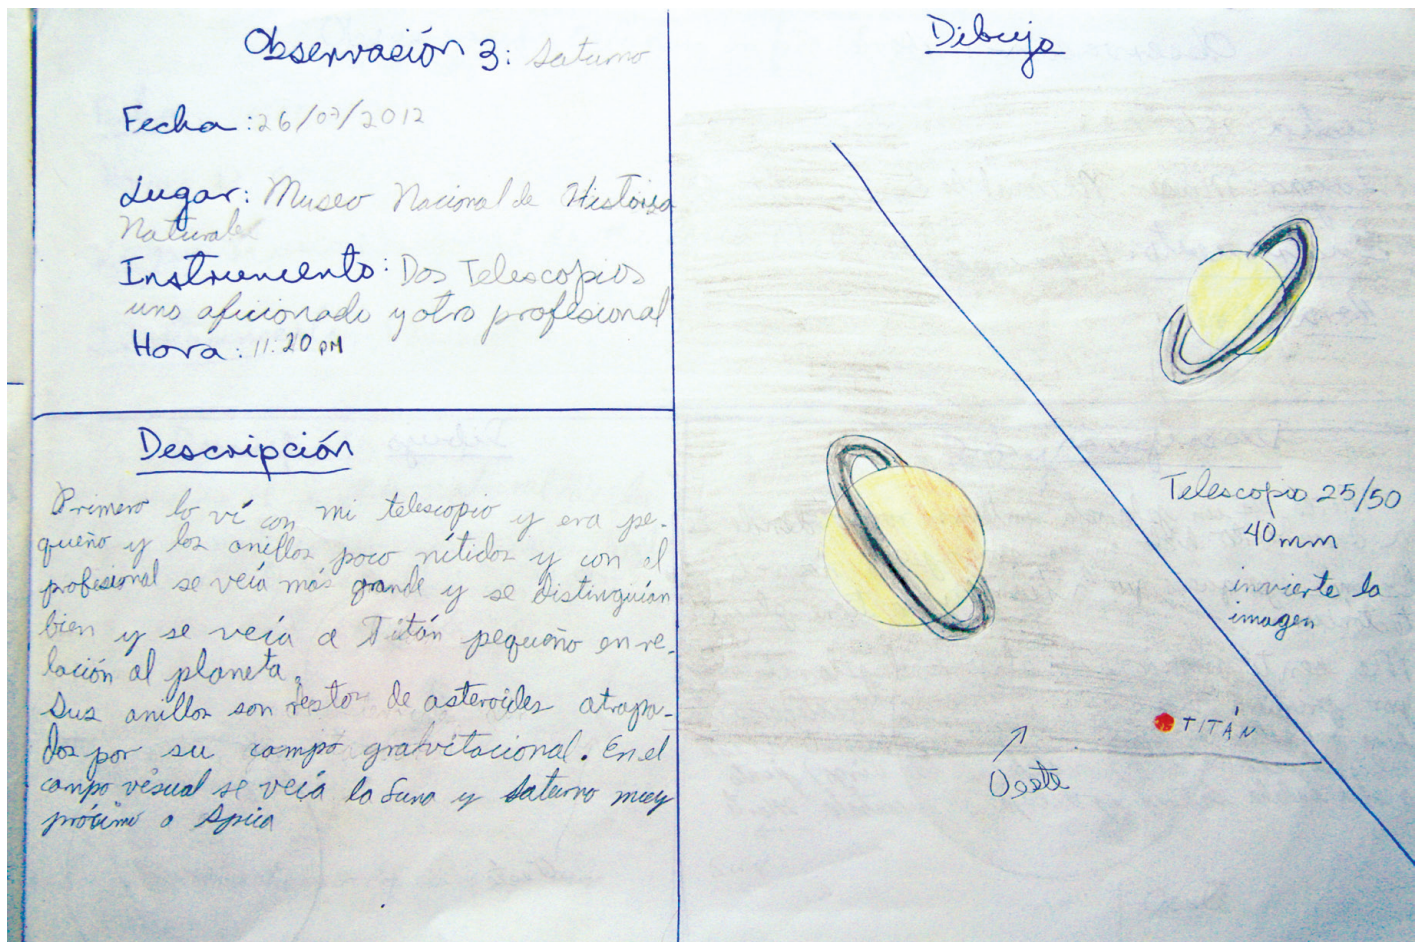 Observación 3: Saturno
Fecha: 26/07/2012
Lugar: Museo Nacional de Historia
Natural
Instrumento: Dos Telescopios
uno aficionado y otro profesional
Hora: 11:20 PM
Descripción
Primero lo ví con mi telescopio y era pe-
queño y los anillos poco nítidos y con el
profesional se veía más grande y se distinguían
bien y se veía a Titán pequeño en re-
lación al planeta.
Sus anillos son restos de asteroides atrapa-
dos por su campo gravitacional. En el
campo visual se veía la Luna y Saturno muy
próximo a Spica
Dibujo
Telescopio 25/50
40mm
invierte la
imagen
TITÁN
Oeste